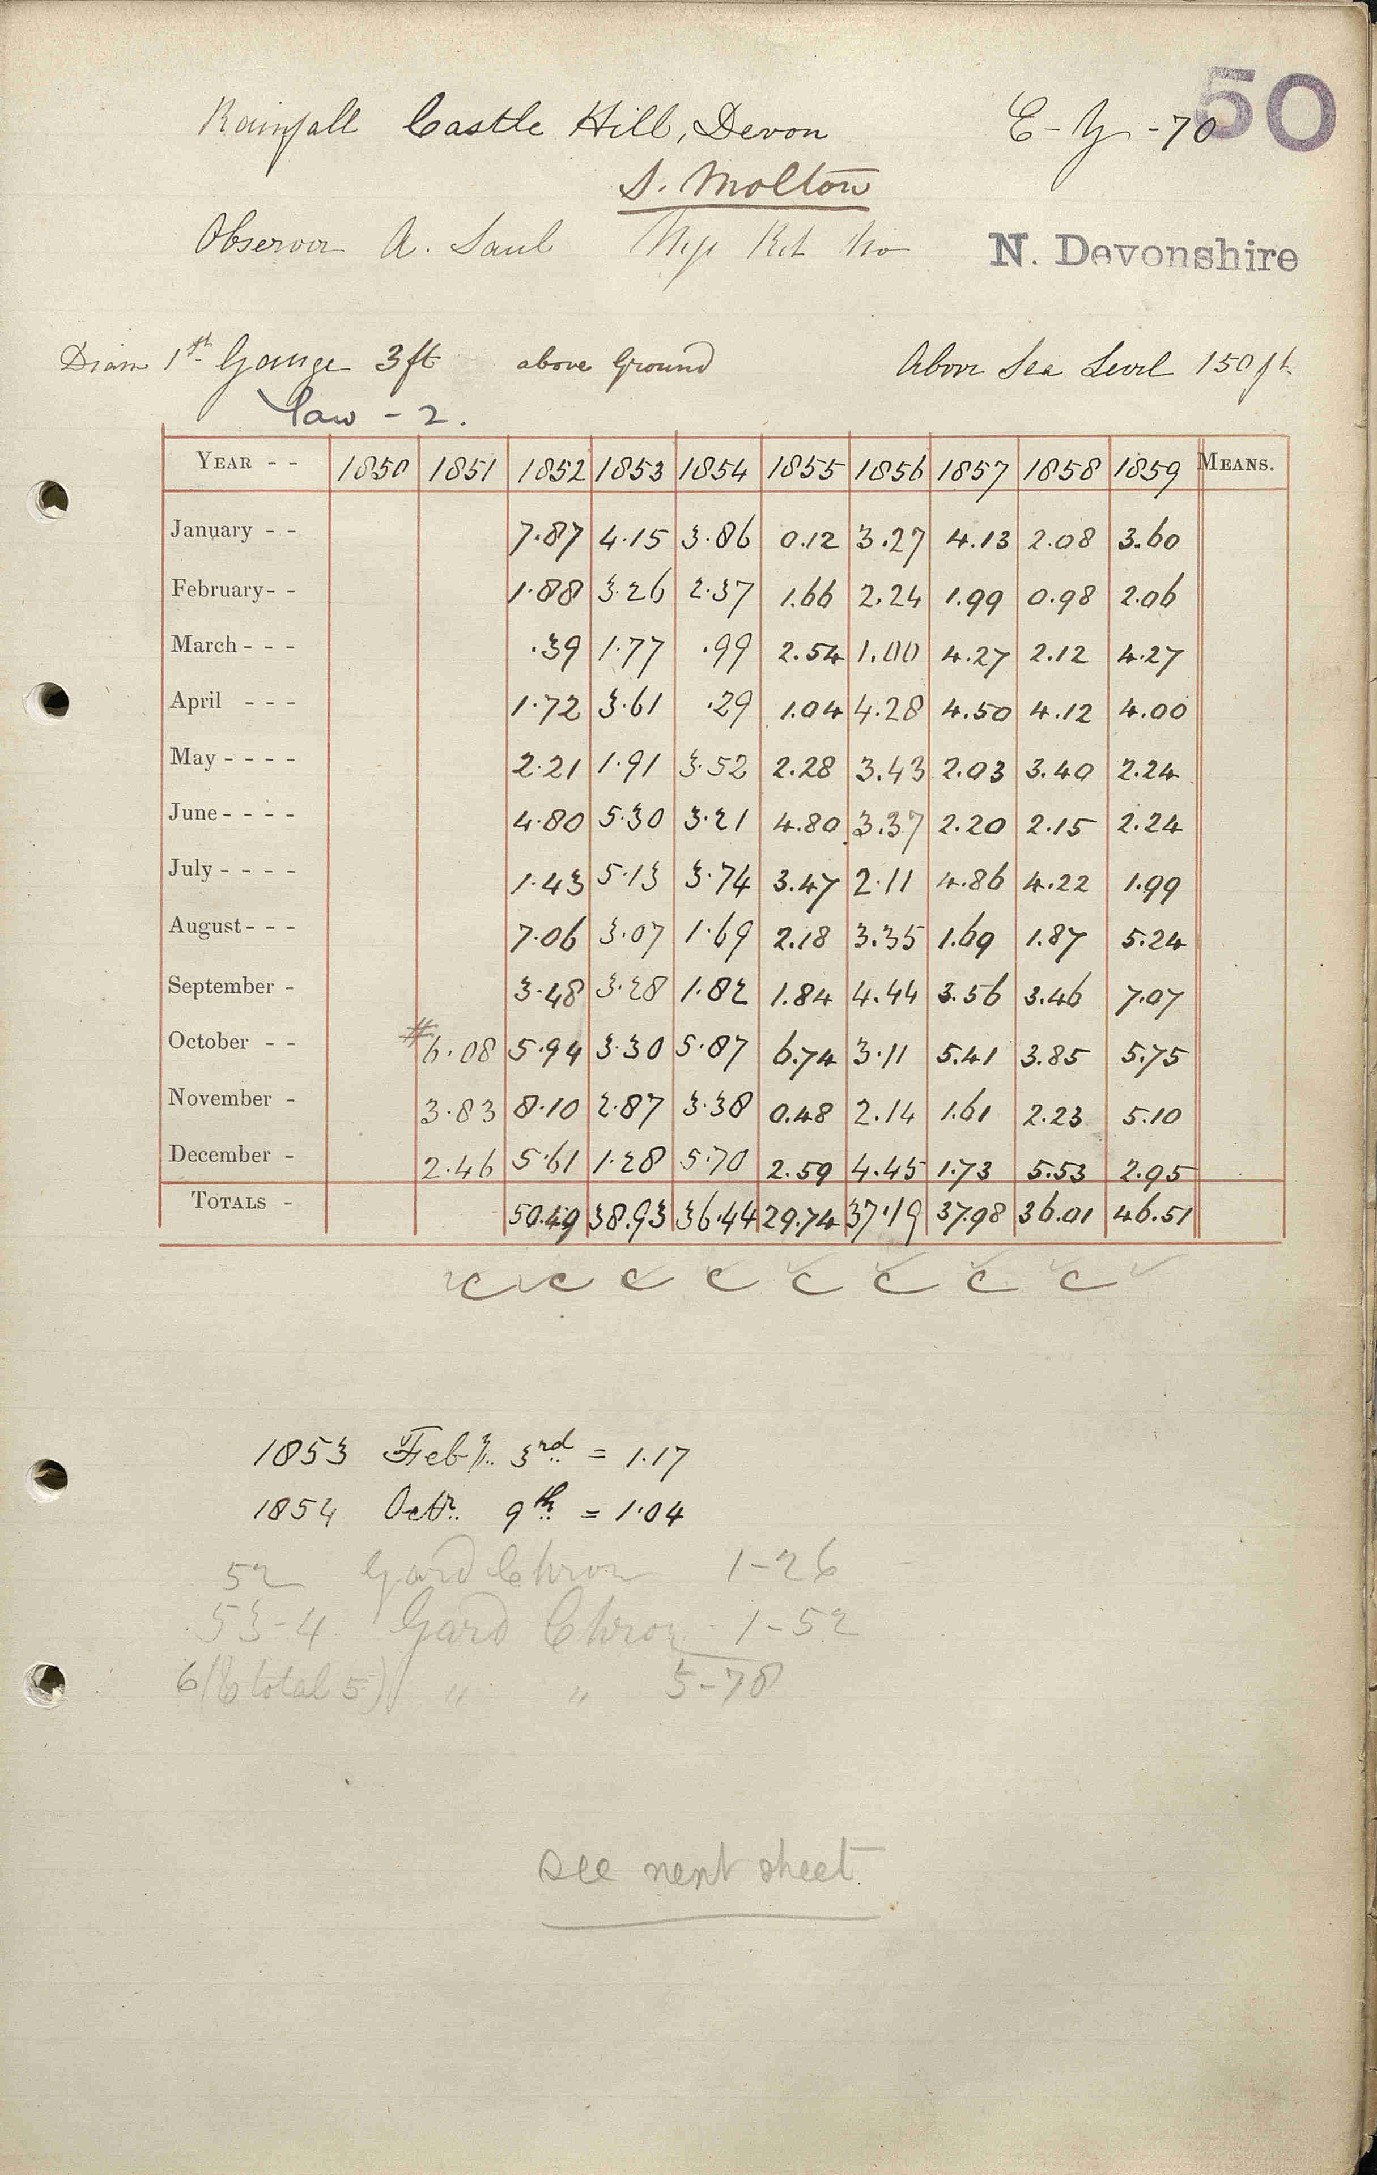 50
Rainfall Castle Hill, Devon E-Y-70
S. Molton
Observer A. Saul
N. Devonshire
Diam 1st Gauge 3ft above Ground Above Sea Level 150ft
- 2.
YEAR - - 1850 1851 1852 1853 1854 1855 1856 1857 1858 1859 MEANS.
January - - 7.87 4.15 3.86 0.12 3.27 4.13 2.08 3.60
February - - 1.88 3.26 2.37 1.66 2.24 1.99 0.98 2.06
March - - - .39 1.77 .99 2.54 1.00 4.27 2.12 4.27
April - - - 1.72 3.61 .29 1.04 4.28 4.50 4.12 4.00
May - - - - 2.21 1.91 3.52 2.28 3.43 2.03 3.40 2.24
June - - - - 4.80 5.30 3.21 4.80 3.37 2.20 2.15 2.24
July - - - - 1.43 5.13 3.74 3.47 2.11 4.86 4.22 1.99
August - - - 7.06 3.07 1.69 2.18 3.35 1.69 1.87 5.24
September - 3.48 3.28 1.82 1.84 4.44 3.56 3.46 7.07
October - - # 6.08 5.94 3.30 5.87 6.74 3.11 5.41 3.85 5.75
November - 3.83 8.10 2.87 3.38 0.48 2.14 1.61 2.23 5.10
December - 2.46 5.61 1.28 5.70 2.59 4.45 1.73 5.53 2.95
TOTALS - 50.49 38.93 36.44 29.74 37.19 37.98 36.01 46.51
c c c c c c c c
1853 Feby. 3rd = 1.17
1854 Octr. 9th = 1.04
52 Gard Chron 1-26
53-4 Gard Chron 1-52
6 (6 total 5) " " 5-78
see next sheet